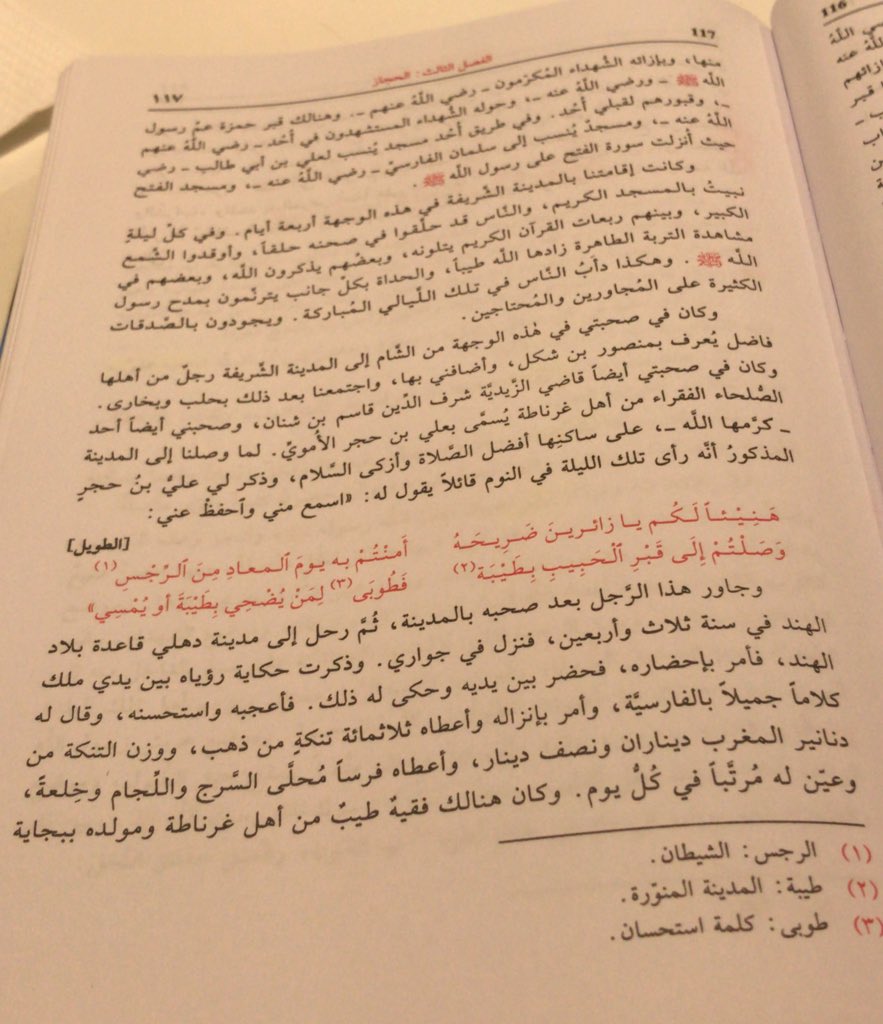 117
الفصل الثالث: الحجاز
١١٧
منها، وبإزائه الشّهداء المُكرّمون ـ رضي اللّهُ عنهم ـ. وهنالك قبر حمزة عمّ رسول
اللّه ﷺ ـ ورضي اللّهُ عنه ـ، وحوله الشّهداء المستشهدون في أُحد ـ رضي اللّهُ عنهم
ـ، وقبورهم لقبلي أُحد. وفي طريق أُحد مسجد يُنسب لعلي بن أبي طالب ـ رضي
اللّهُ عنه ـ، ومسجدٌ يُنسب إلى سلمان الفارسيّ ـ رضي اللّهُ عنه ـ، ومسجد الفتح
حيث أنزلت سورة الفتح على رسول اللّه ﷺ.
وكانت إقامتنا بالمدينة الشّريفة في هذه الوجهة أربعة أيام. وفي كلّ ليلةٍ
نبيتُ بالمسجد الكريم، والنّاس قد حلّقوا في صحنه حلقاً، وأوقدوا الشّمع
الكبير، وبينهم ربعات القرآن الكريم يتلونه، وبعضُهم يذكرون اللّه، وبعضهم في
مشاهدة التربة الطاهرة زادها اللّه طيباً، والحداة بكلّ جانب يترنّمون بمدح رسول
اللّه ﷺ. وهكذا دأبُ النّاس في تلك اللّيالي المباركة. ويجودون بالصّدقات
الكثيرة على المُجاورين والمُحتاجين.
وكان في صحبتي في هٰذه الوجهة من الشّام إلى المدينة الشّريفة رجلٌ من أهلها
فاضل يُعرف بمنصور بن شكل، وأضافني بها، واجتمعنا بعد ذلك بحلب وبخارى.
وكان في صحبتي أيضاً قاضي الزّيديّة شرف الدّين قاسم بن شنان، وصحبني أيضاً أحد
الصُّلحاء الفقراء من أهل غرناطة يُسمَّى بعلي بن حجر الأمويّ. لما وصلنا إلى المدينة
ـ كرَّمها اللَّه ـ، على ساكنِها أفضل الصَّلاة وأزكى السَّلام، وذكر لي عليُّ بنُ حجرٍ
المذكورُ أنَّه رأى تلك الليلة في النوم قائلاً يقول له: «اسمع مني واَحفظْ عني:
[الطويل]
هَنِيْئاً لَكُم يا زائرينَ ضَرِيحَهُ أَمنْتُمْ به يومَ المعادِ مِنَ الرِّجْسِ(١)
وَصَلْتُمْ إِلَى قَبْرِ الْحَبِيبِ بِطَيْبَة(٢) فَطُوبَى(٣) لِمَنْ يُضْحِي بِطَيْبَةَ أو يُمْسِي»
وجاور هذا الرَّجل بعد صحبه بالمدينة، ثُمَّ رحل إلى مدينة دهلي قاعدة بلاد
الهند في سنة ثلاث وأربعين، فنزل في جواري. وذكرت حكاية رؤياه بين يدي ملك
الهند، فأمر بإحضاره، فحضر بين يديه وحكى له ذلك. فأعجبه واستحسنه، وقال له
كلاماً جميلاً بالفارسيَّة، وأمر بإنزاله وأعطاه ثلاثمائة تنكةٍ من ذهب، ووزن التنكة من
دنانير المغرب ديناران ونصف دينار، وأعطاه فرساً مُحلَّى السَّرج واللِّجام وخِلعةً،
وعيّن له مُرتَّباً في كُلُّ يوم. وكان هنالك فقيهٌ طيبٌ من أهل غرناطة ومولده ببجاية
(١) الرجس: الشيطان.
(٢) طيبة: المدينة المنوّرة.
(٣) طوبى: كلمة استحسان.
116